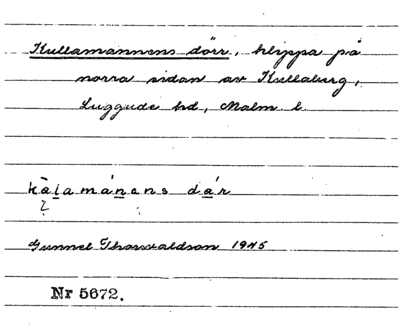 Kullamannens dörr, klippa på
norra sidan av Kullaberg,
Luggude hd, Malm. l.
kàlamánans dár
Gunnel Thorvaldson 1945
Nr 5672.